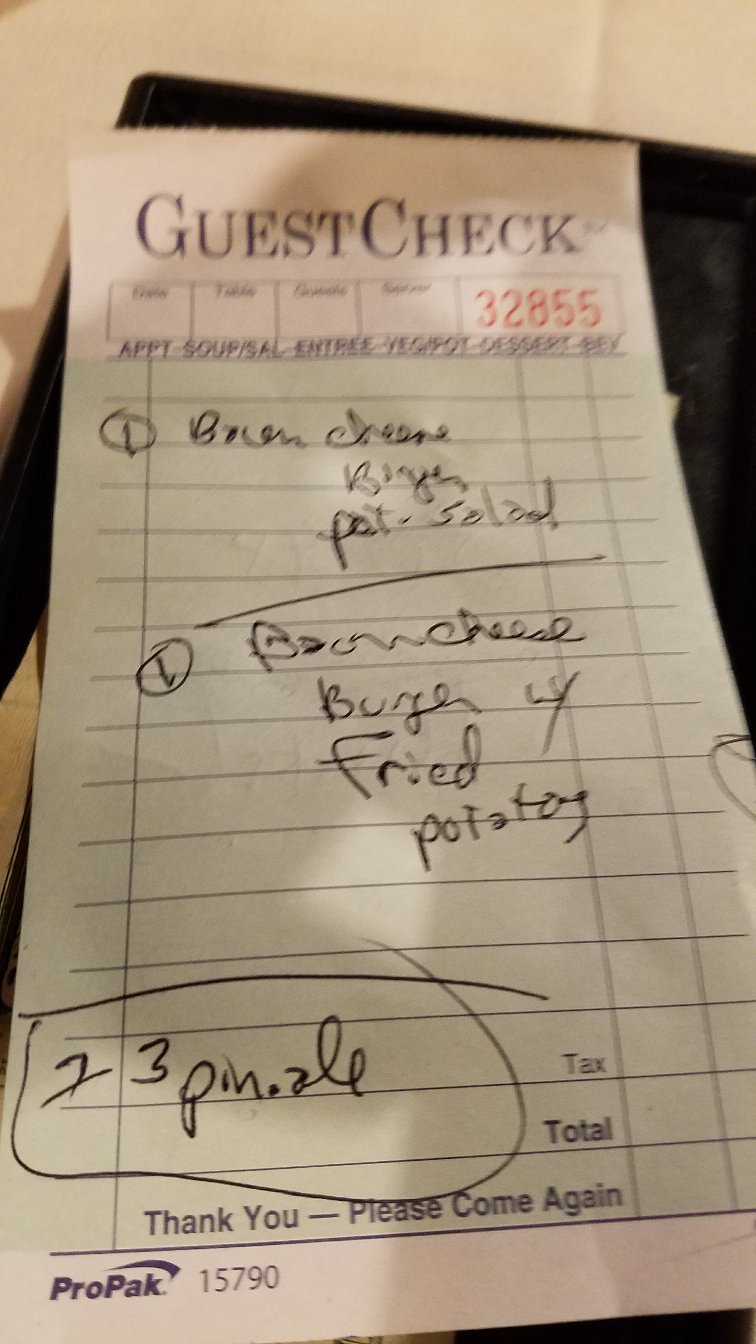 GUESTCHECK™
Date Table Guests Server 32855
APPT-SOUP/SAL-ENTREE-VEG/POT-DESSERT-BEV
① Bacon cheese
Burger
pot. salad
① Bacon cheese
Burger w/
Fried
potatoes
3 pin. ale
Tax
Total
Thank You — Please Come Again
ProPak 15790